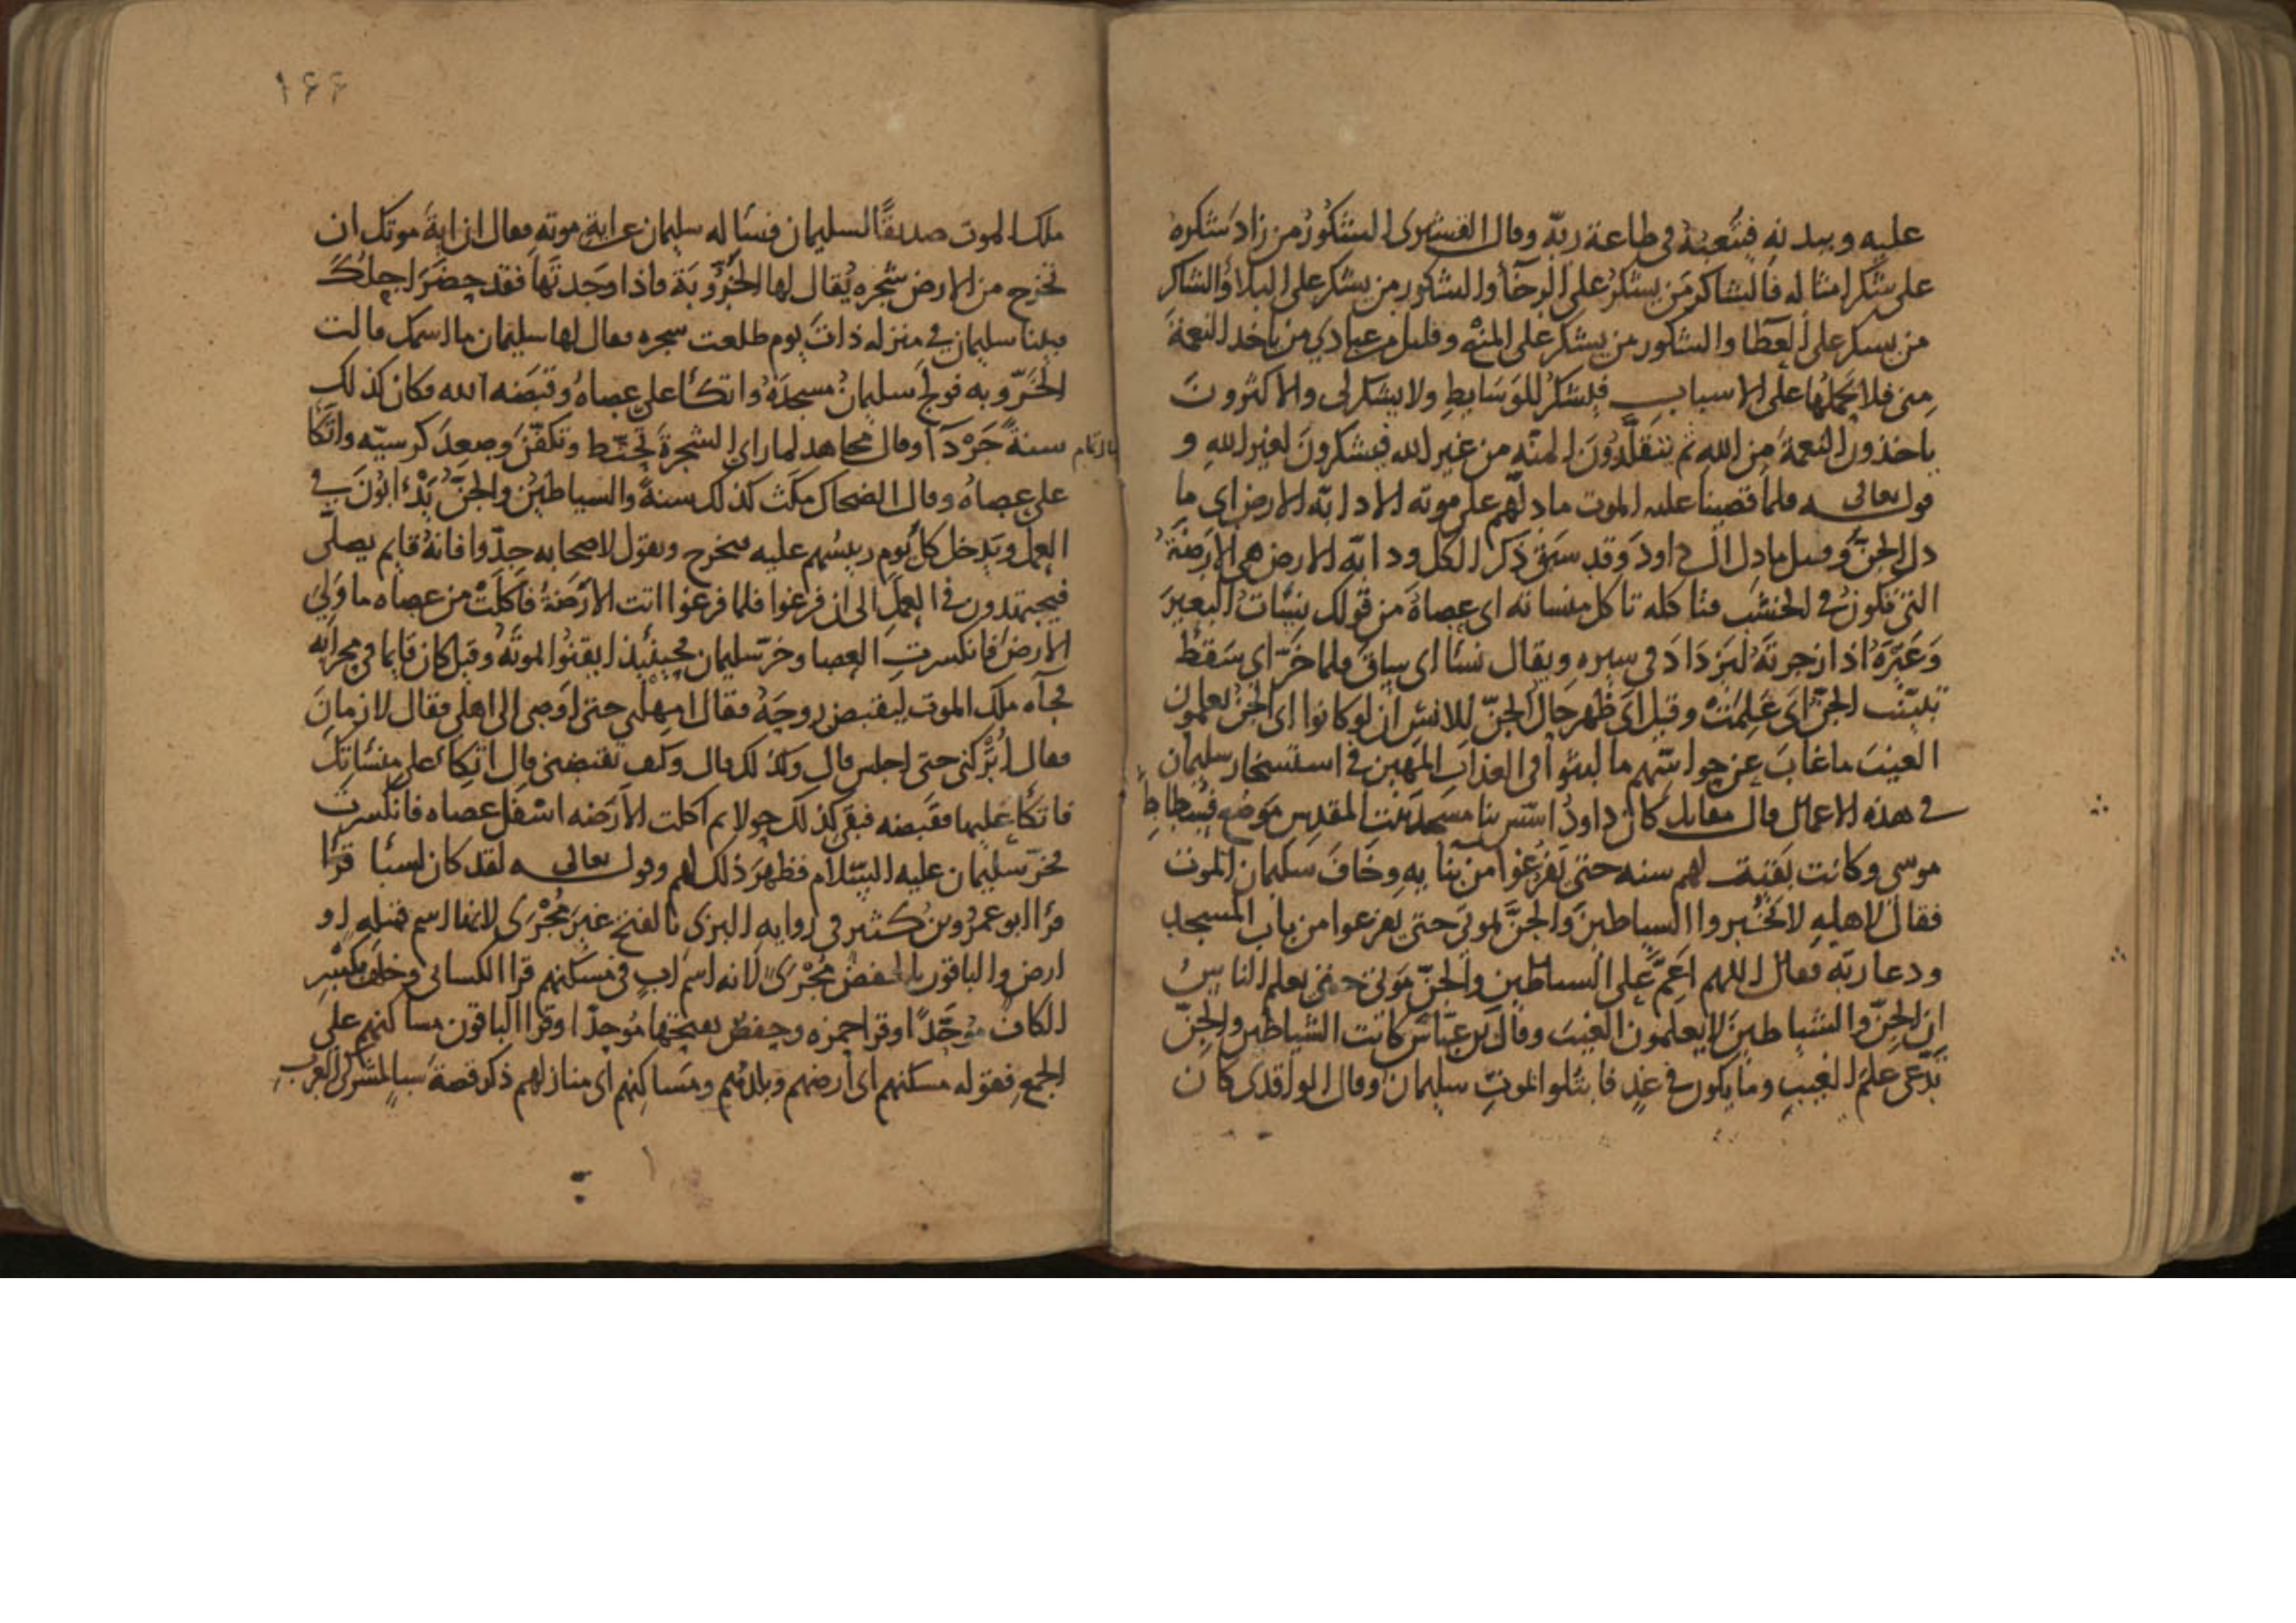 عليه وببدنه فيتعبه في طاعة ربّه وقال القشيرى الشكور من زاد شكره
على شكر امثاله فالشاكر من يشكر على الرخآ والشكور من يشكر على البلاؤ الشاكر
من يسكر على العطا والشكور من يشكر على المنع وقليل من عبادي من ياخد النعمة
منى فلا يحملها على الاسباب فيشكر للوسايط ولا يشكر لى والاكثرون
ياخذون النعمة من الله ثم يتقلدون المنّه من غير الله فيشكرون لغير الله و
قوله تعالى فلما قضينا عليه الموت ما دلّهم على موته الا دابّه الارض اى ما
دل الجنّ وقيل ما دل ال داود وقد سبق ذكر الكل ودابّه الارض هى الارضة
التى تكون في الخشب فتاكله تاكل منساته اى عصاه من قولك نسات البعير
وغيره اذا زجرته ليزداد في سيره ويقال نسا اى ساق فلما خرّ اى سقط
تبيّنت الجنّ اى علمت وقيل اى ظهر حال الجنّ للانس ان لو كانوا اى الجن يعلمون
الغيب ما غاب عن حواسّهم ما لبثوا في العذاب المهين في استسخار سليمان
في هذه الاعمال قال مقاتل كان داود اسّس بنا مسجد بيت المقدس موضع فسطاط
موسى وكانت بقيت لهم سنه حتى يفرغوا من بنايه وخاف سليمان الموت
فقال لاهله لا تخبروا الشياطين والجنّ بموتى حتى يفرغوا من باب المسجد
ودعا ربّه فقال اللهم اعمّ على الشياطين والجنّ موتى حتى يعلم الناس
ان الجنّ والشياطين لا يعلمون الغيب وقال بن عبّاس كانت الشياطين والجنّ
تدّعى علم الغيب وما يكون في غد فابتلوا بموت سليمان وقال الواقدى كان
١٦٦
ملك الموت صديقًا لسليمان فسأله سليمان عن اية موته فقال ان اية موتك ان
تخرج من الارض شجره يقال لها الخرّوبة فاذا وجدتها فقد حضر اجلك
فبينا سليمان في منزله ذات يوم طلعت سجره فقال لها سليمان ما اسمك قالت
الخرّوبه فولج سليمان مسجده واتكأ على عصاه وقبضه الله فكان كذلك
سنة جردآ وقال مجاهد لما راى الشجرة تحنّط وتكفّن وصعد كرسيّه واتكأ
على عصاه وقال الضحاك مكث كذلك سنة والسياطين والجنّ يدأبون في
العمل ويدخل كل يوم رييسهم عليه فيخرج ويقول لاصحابه جدّوا فانه قايم يصلّى
فيجتهدون في العمل الى ان فرغوا فلما فرغوا اتت الارضة فاكلت من عصاه ما ولي
الارض فانكسرت العصا وخرّ سليمان فحينئذ ايقنوا بموته وقيل كان قايما في محرابه
فجآه ملك الموت ليقبض روحه فقال امهلنى حتى اوصى الى اهلى فقال لا زمان
فقال اتركنى حتى اجلس قال ولا كذلك قال وكيف تقبضنى قال اتكئ على منسأتك
فاتكأ عليها فقبضه فبقى كذلك حولا ثم اكلت الارضه اسفل عصاه فانكسرت
فخرّ سليمان عليه السّلام فظهر ذلك لهم وقوله تعالى لقد كان لسبا قرا
قرأ ابو عمرو وبن كثير في روايه البزى بالفتح غير مجرى لانها اسم قبيله او
ارض والباقون بالخفض مجرى لانه اسم اب في مسكنهم قرا الكسائى وخلف بكسر
الكاف موحّدًا وقرا حمزه وحفص بفتحها موحدّا وقرا الباقون مساكنهم على
الجمع فقوله مسكنهم اى ارضهم وبلدهم ومساكنهم اى منازلهم ذكر قصة سبا لمشركى العرب